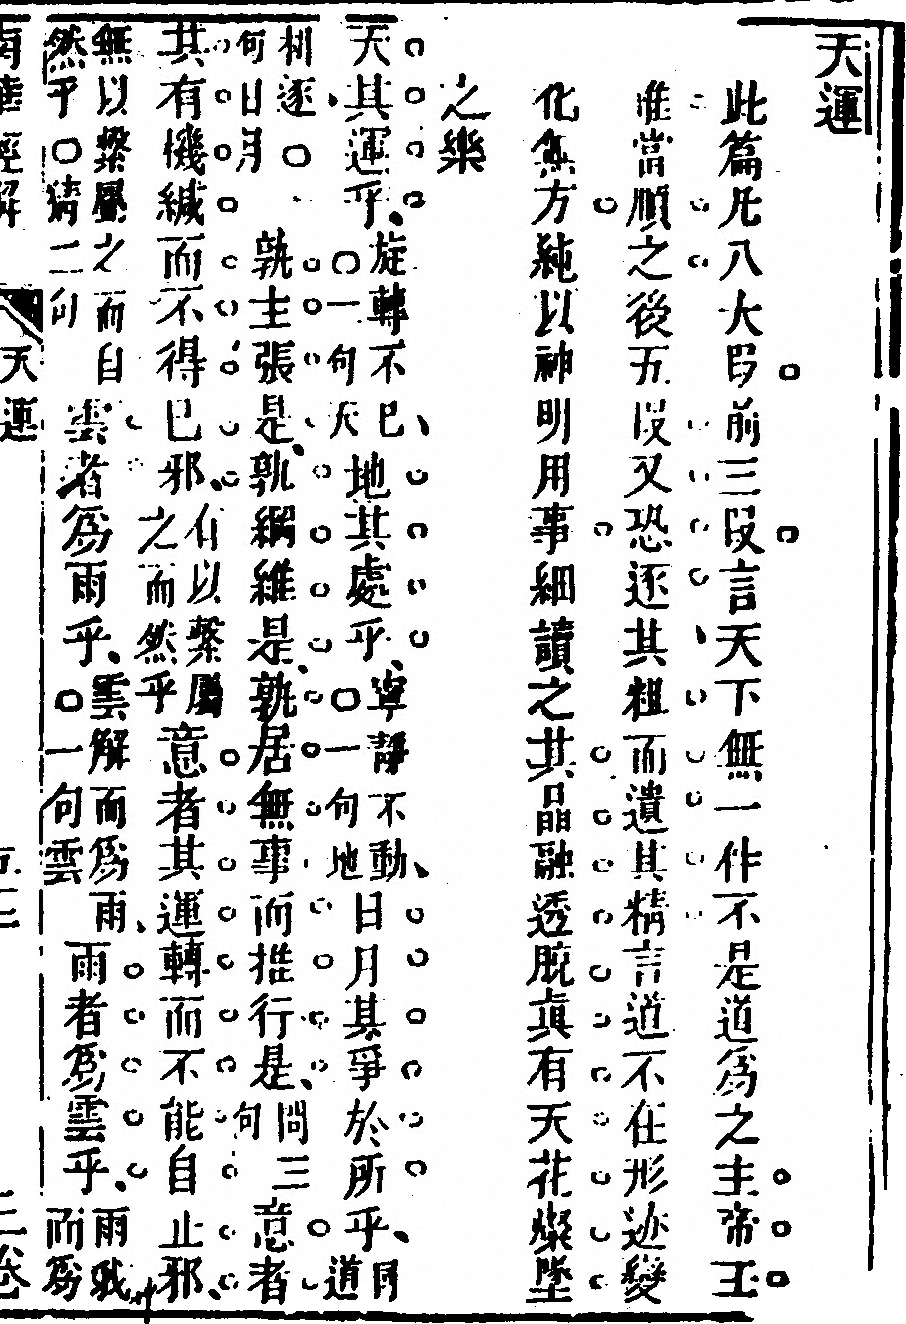 天運
此篇凡八大段前三段言天下無一件不是道為之主帝王
惟當順之後五段又恐逐其粗而遺其精言道不在形迹變
化無方純以神明用事細讀之其晶融透脫真有天花燦墜
之樂
天其運乎旋轉不已〇一句天地其處乎寧靜不動〇一句地日月其爭於所乎同道
相逐〇句日月孰主張是孰綱維是孰居無事而推行是問三句意者
其有機緘而不得已邪有以繫屬之而然乎意者其運轉而不能自止邪
無以繫屬之而自然乎〇猜二句雲者為雨乎雲解而為雨〇一句雲雨者為雲乎雨戏而為
南華經解 天運 二卷